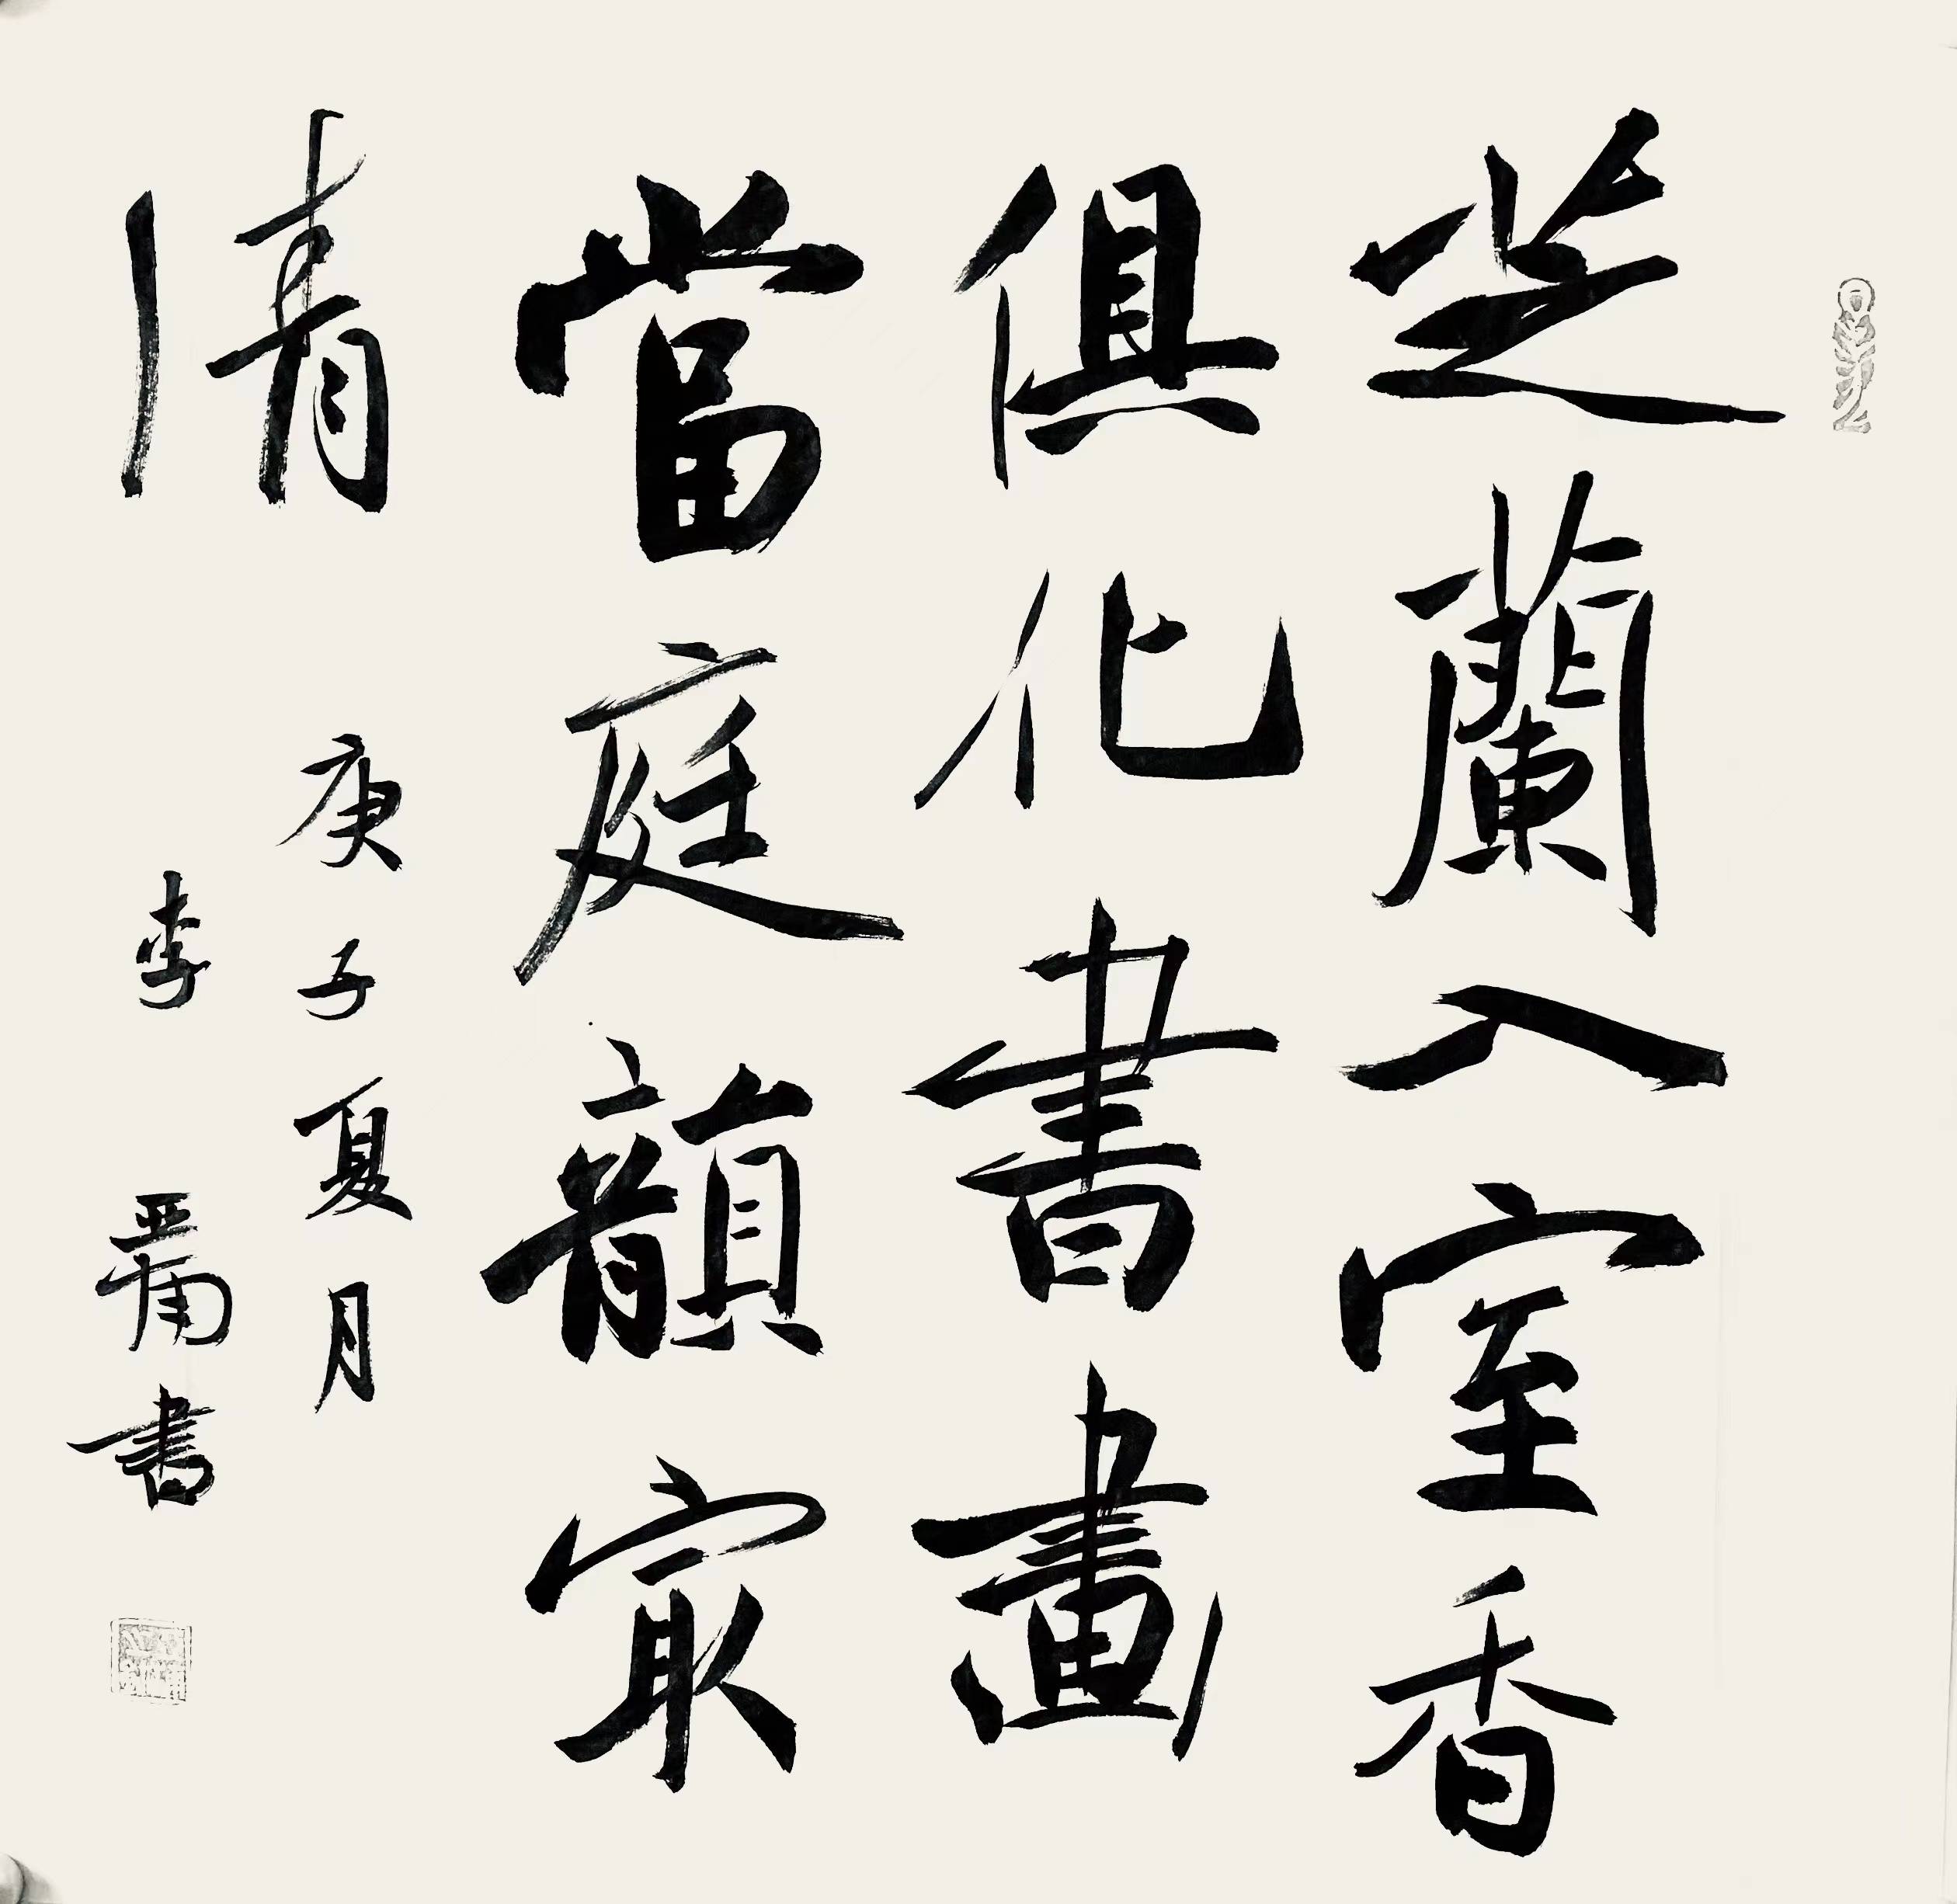 芝蘭入室香
俱化書畫
當庭韻冣
清
庚子夏月
李
書